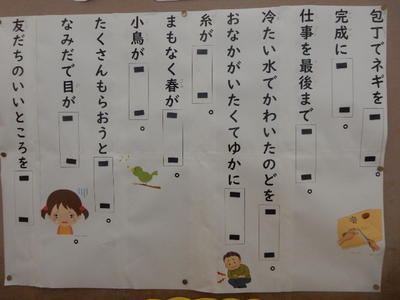 包丁でネギを。
完成に。
仕事を最後まで。
冷たい水でかわいたのどを。
おなかがいたくてゆかに
糸が。
まもなく春が。
小鳥が。
たくさんもらおうと。
なみだで目が。
友だちのいいところを